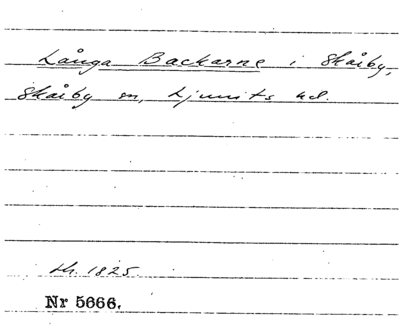 Långa Backarne i Skårby,
Skårby sn, Ljunits hd.
Nr 5666.